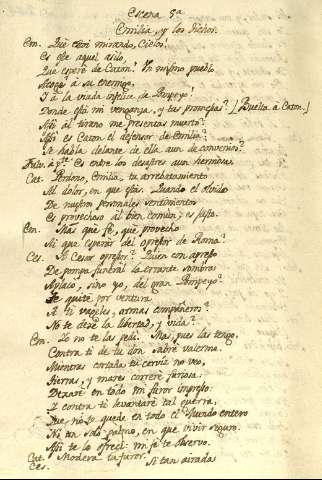 Escena 5ª
Emilia, y los dichos.
Em. Qué estoi mirando, Cielos!
Es ese aquel asilo,
Que esperé de Caton? Un mismo pueblo
Acoge á su enemigo,
I á la viuda infelice de Pompeyo?
Donde está mi venganza, y tus promesas? (Buelta á Caton.)
Asi al tirano me presentas muerto?
Asi es Caton el defensor de Emilia?
I se habla delante de ella aun de convenios?
Fulv. á pte. Es entre los desastres aun hermosa.
Cat. Perdono, Emilia, tu arrebatamiento
Al dolor, en que estás. Quando el olvido
De nuestros personales sentimientos
Es provechoso al bien comun, es justo.
Em. Mas que fe, que provecho
Ni que esperar del opresor de Roma?
Ces. A Cesar opresor? Quien con aprestos
De pompa funeral la errante sombra
Aplacó, sino yo, del gran Pompeyo?
Te quité por ventura
A ti vageles, armas, compañeros?
No te dexé la libertad, y vida?
Em. Io no te las pedí. Mas, pues las tengo,
Contra ti de tu don sabré valerme.
Mientras cortada tu cerviz no veo,
Tierras, y mares correré furiosa:
Dexaré en todo mi furor impreso:
I contra ti levantaré tal guerra,
Que no te quede en todo el Mundo entero
Ni tan solo palmo, en que vivir seguro.
Asi te lo ofrecí: mi fe te observo.
Cat. Modera tu furor.
Ces. Si tan airada